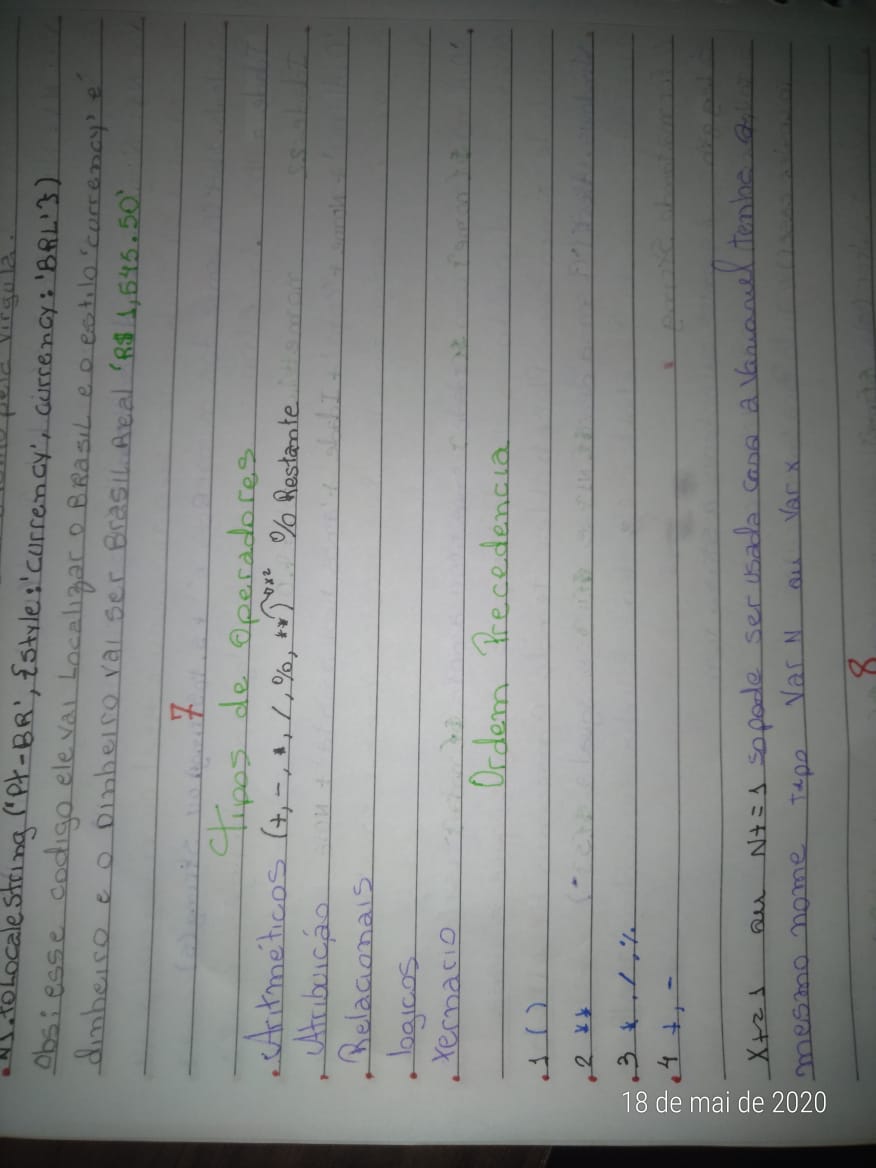 pela virgula.
N1.toLocaleString('Pt-BR', {style:'currency', currency:'BRL'})
Obs: esse codigo ele vai Localizar o BRasiL e o estilo 'currency' e
dinheiro e o Dinheiro vai ser BrasiL Real 'R$ 1,545.50'
7
Tipos de Operadores
Aritméticos (+, -, *, /, %, **) % Restante
Atribuição
Relacionais
logicos
ternario
Ordem Precedencia
1 ()
2 **
3 *, /, %
4 +, -
X+=1 ou N+=1 so pode ser usada caso a Variavel tenha o
mesmo nome tipo Var N ou Var x
8
18 de mai de 2020